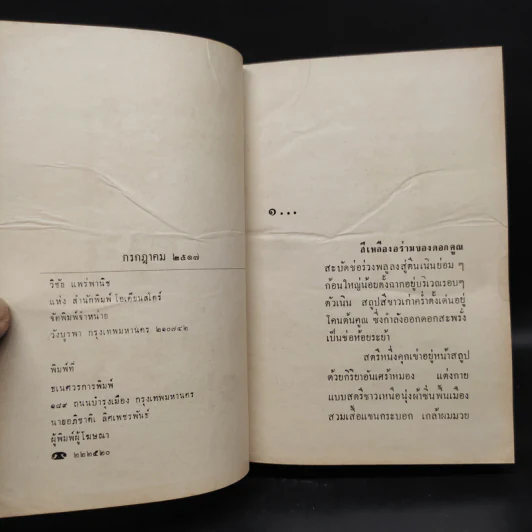 กรกฎาคม ๒๕๑๗
วิชัย แพร่พานิช
แห่ง สำนักพิมพ์ โอเดียนสโตร์
จัดพิมพ์จำหน่าย
วังบูรพา กรุงเทพมหานคร ๒๑๐๗๔๒
พิมพ์ที่
ธเนศวรการพิมพ์
๑๘๙ ถนนบำรุงเมือง กรุงเทพมหานคร
นายอภิชาติ เลิศเพชรพันธ์
ผู้พิมพ์ผู้โฆษณา
☎ ๒๒๒๕๒๐
๑...
สีเหลืองอร่ามของดอกคูณ
สะบัดช่อร่วงพลูลงสู่ตีนเนินย่อม ๆ
ก้อนใหญ่น้อยตั้งฉากอยู่บริเวณรอบๆ
ตัวเนิน สถูปสีขาวเก่าคร่ำตั้งเด่นอยู่
โคนต้นคูณ ซึ่งกำลังออกดอกสะพรั่ง
เป็นช่อห้อยระย้า
สตรีหนึ่งคุกเข่าอยู่หน้าสถูป
ด้วยกิริยาอันเศร้าหมอง แต่งกาย
แบบสตรีชาวเหนือนุ่งผ้าซิ่นพื้นเมือง
สวมเสื้อแขนกระบอก เกล้าผมมวย